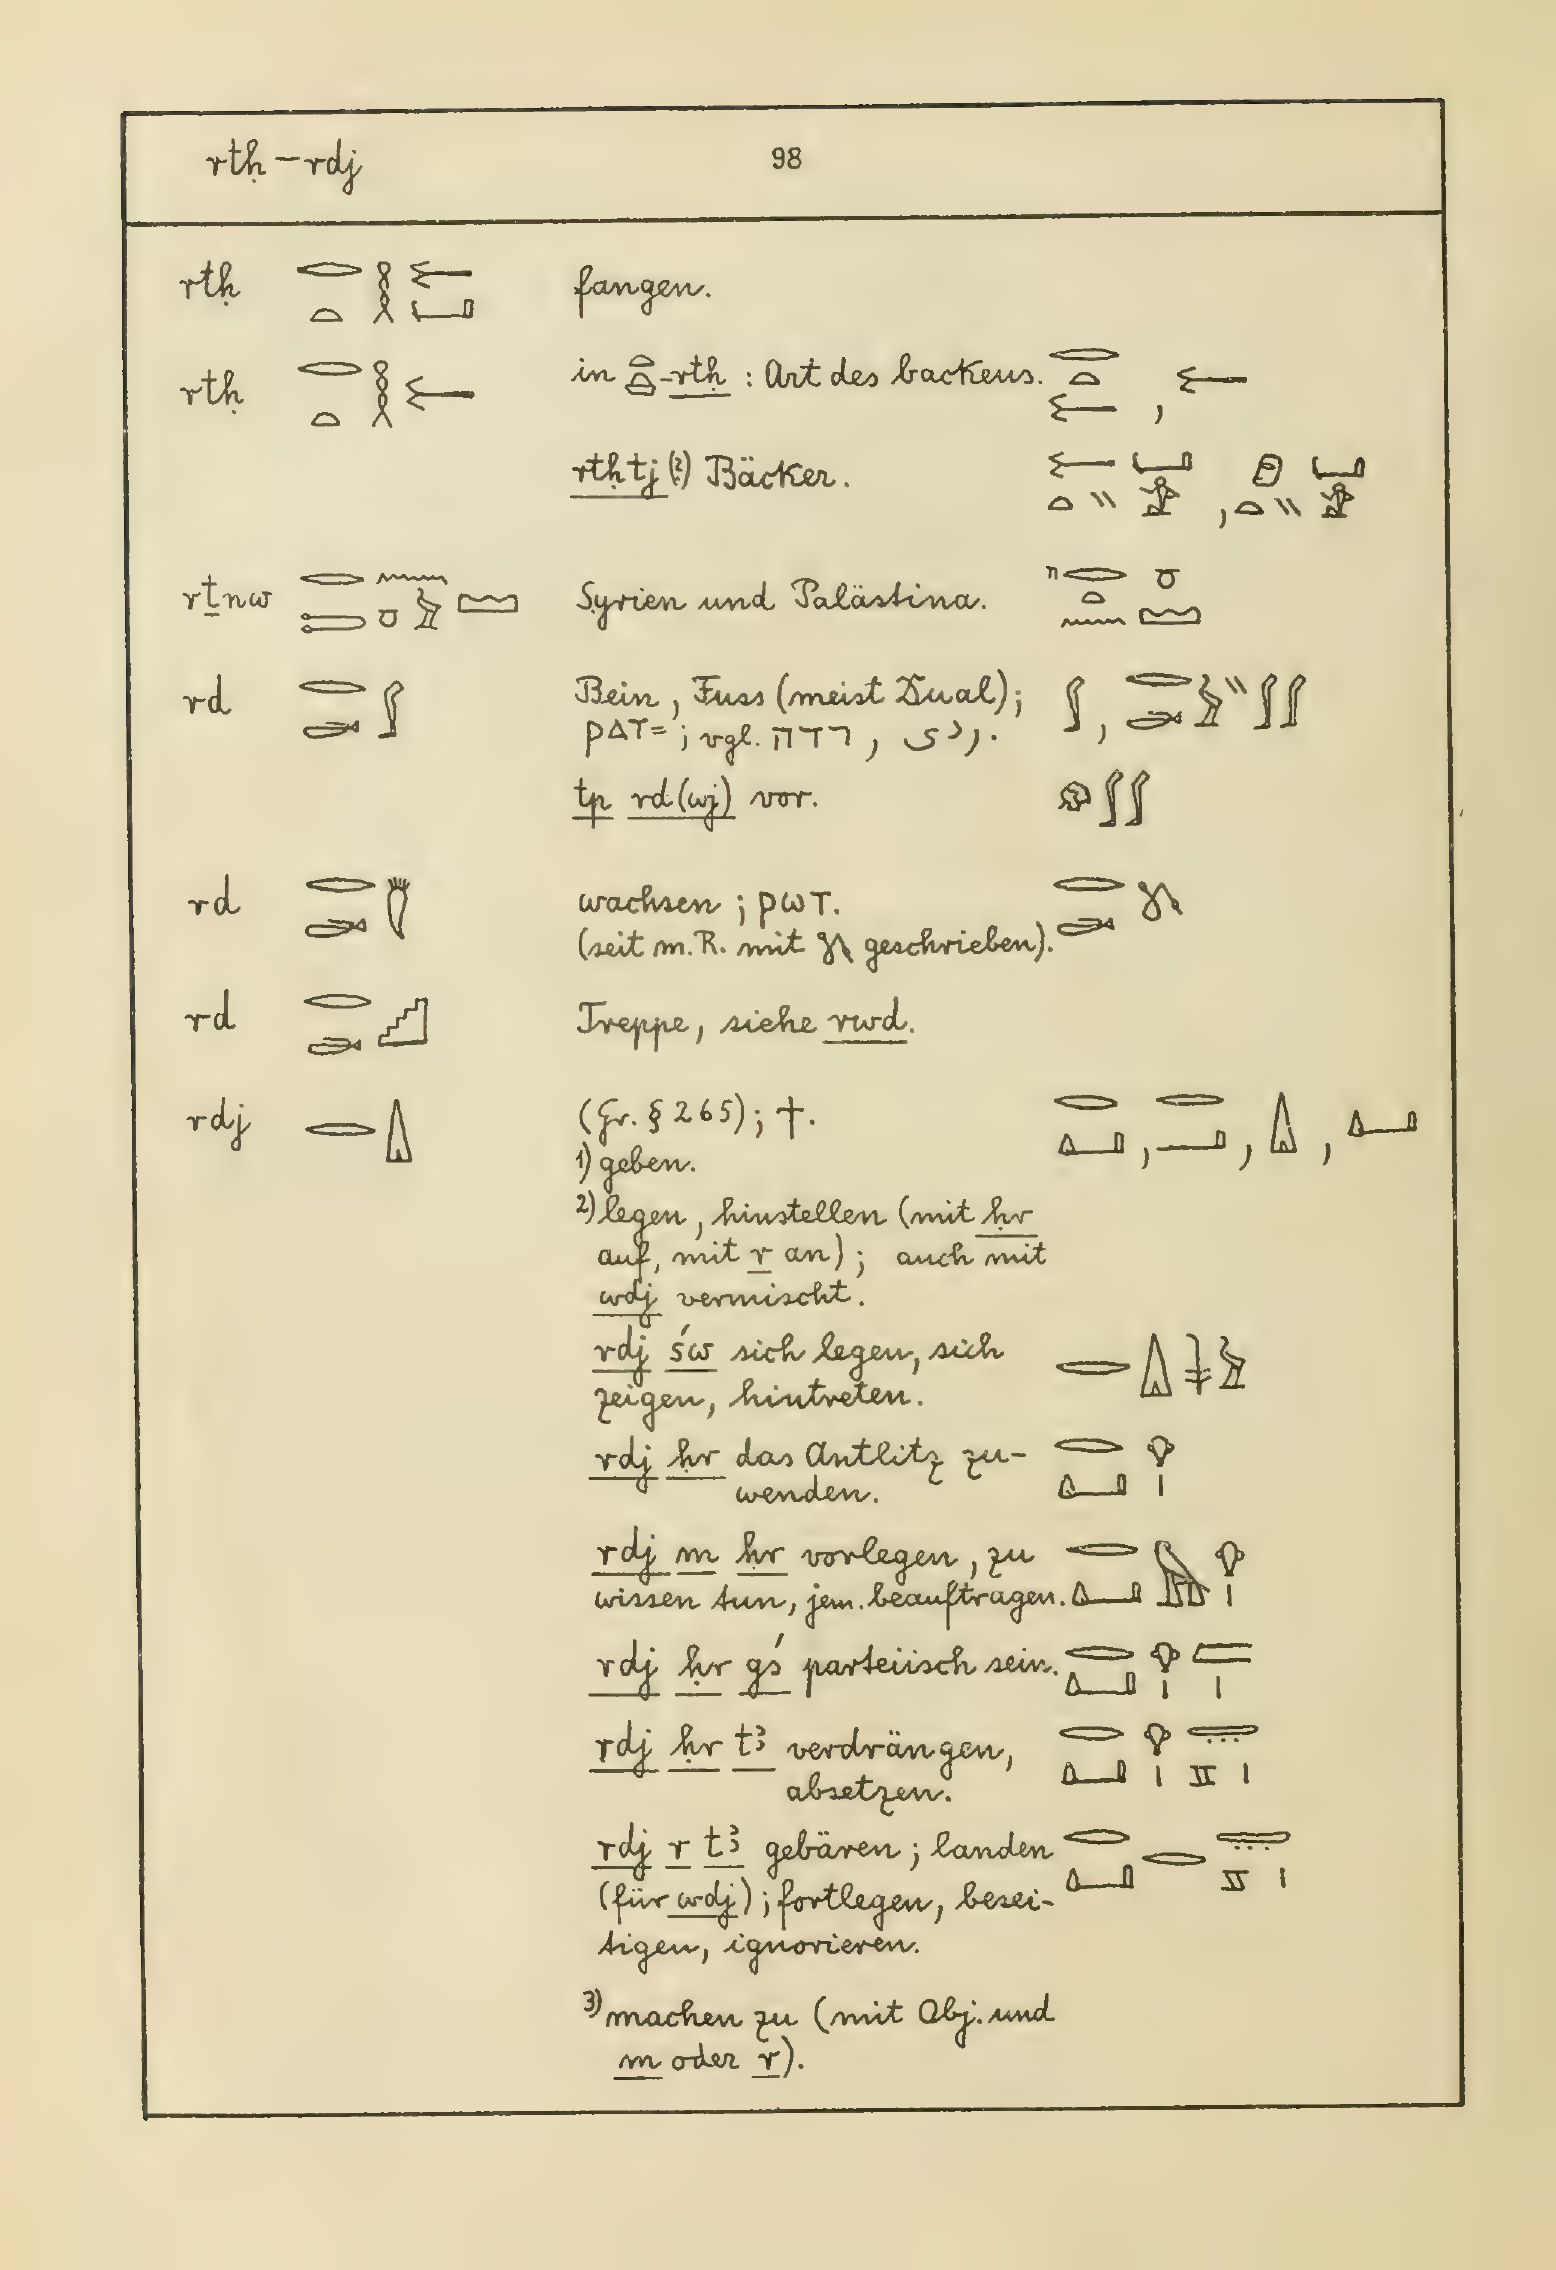 rtḥ – rdj 98
rtḥ 𓂋𓏏𓎛 fangen.
rtḥ 𓂋𓏏𓎛 in 𓏏-rtḥ : Art des backens. 𓂋𓏏 ,
rtḥtj (?) Bäcker.
rṯnw Syrien und Palästina.
rd 𓂋𓂧𓂾 Bein, Fuss (meist Dual); 𓂾 , 𓂋𓂧𓅱𓏭𓂾𓂾
ⲣⲁⲧ⸗ ; vgl. רדה , .
tp rd(wj) vor. 𓁶𓂾𓂾
rd 𓂋𓂧 wachsen ; ⲣⲱⲧ. 𓂋𓂧
(seit m.R. mit geschrieben).
rd 𓂋𓂧𓊍 Treppe, siehe rwd.
rdj 𓂋𓏙 (Gr. § 265) ; ϯ. 𓂋𓂞 , 𓂋𓂝 , 𓏙 , 𓂞
1) geben.
2) legen, hinstellen (mit ḥr
auf, mit r an) ; auch mit
wdj vermischt.
rdj św sich legen, sich 𓂋𓏙𓇓𓅱
zeigen, hintreten.
rdj ḥr das Antlitz zu- 𓂋𓂞𓁷𓏤
wenden.
rdj m ḥr vorlegen, zu 𓂋𓂞𓅓𓁷𓏤
wissen tun, jem. beauftragen.
rdj ḥr gś parteiisch sein. 𓂋𓂞𓁷𓏤𓐛𓏤
rdj ḥr tꜣ verdrängen, 𓂋𓂞𓁷𓏤𓇾𓈅𓏤
absetzen.
rdj r tꜣ gebären ; landen 𓂋𓂞𓂋𓇾𓈅𓏤
(für wdj) ; fortlegen, besei-
tigen, ignorieren.
3) machen zu (mit Obj. und
m oder r).